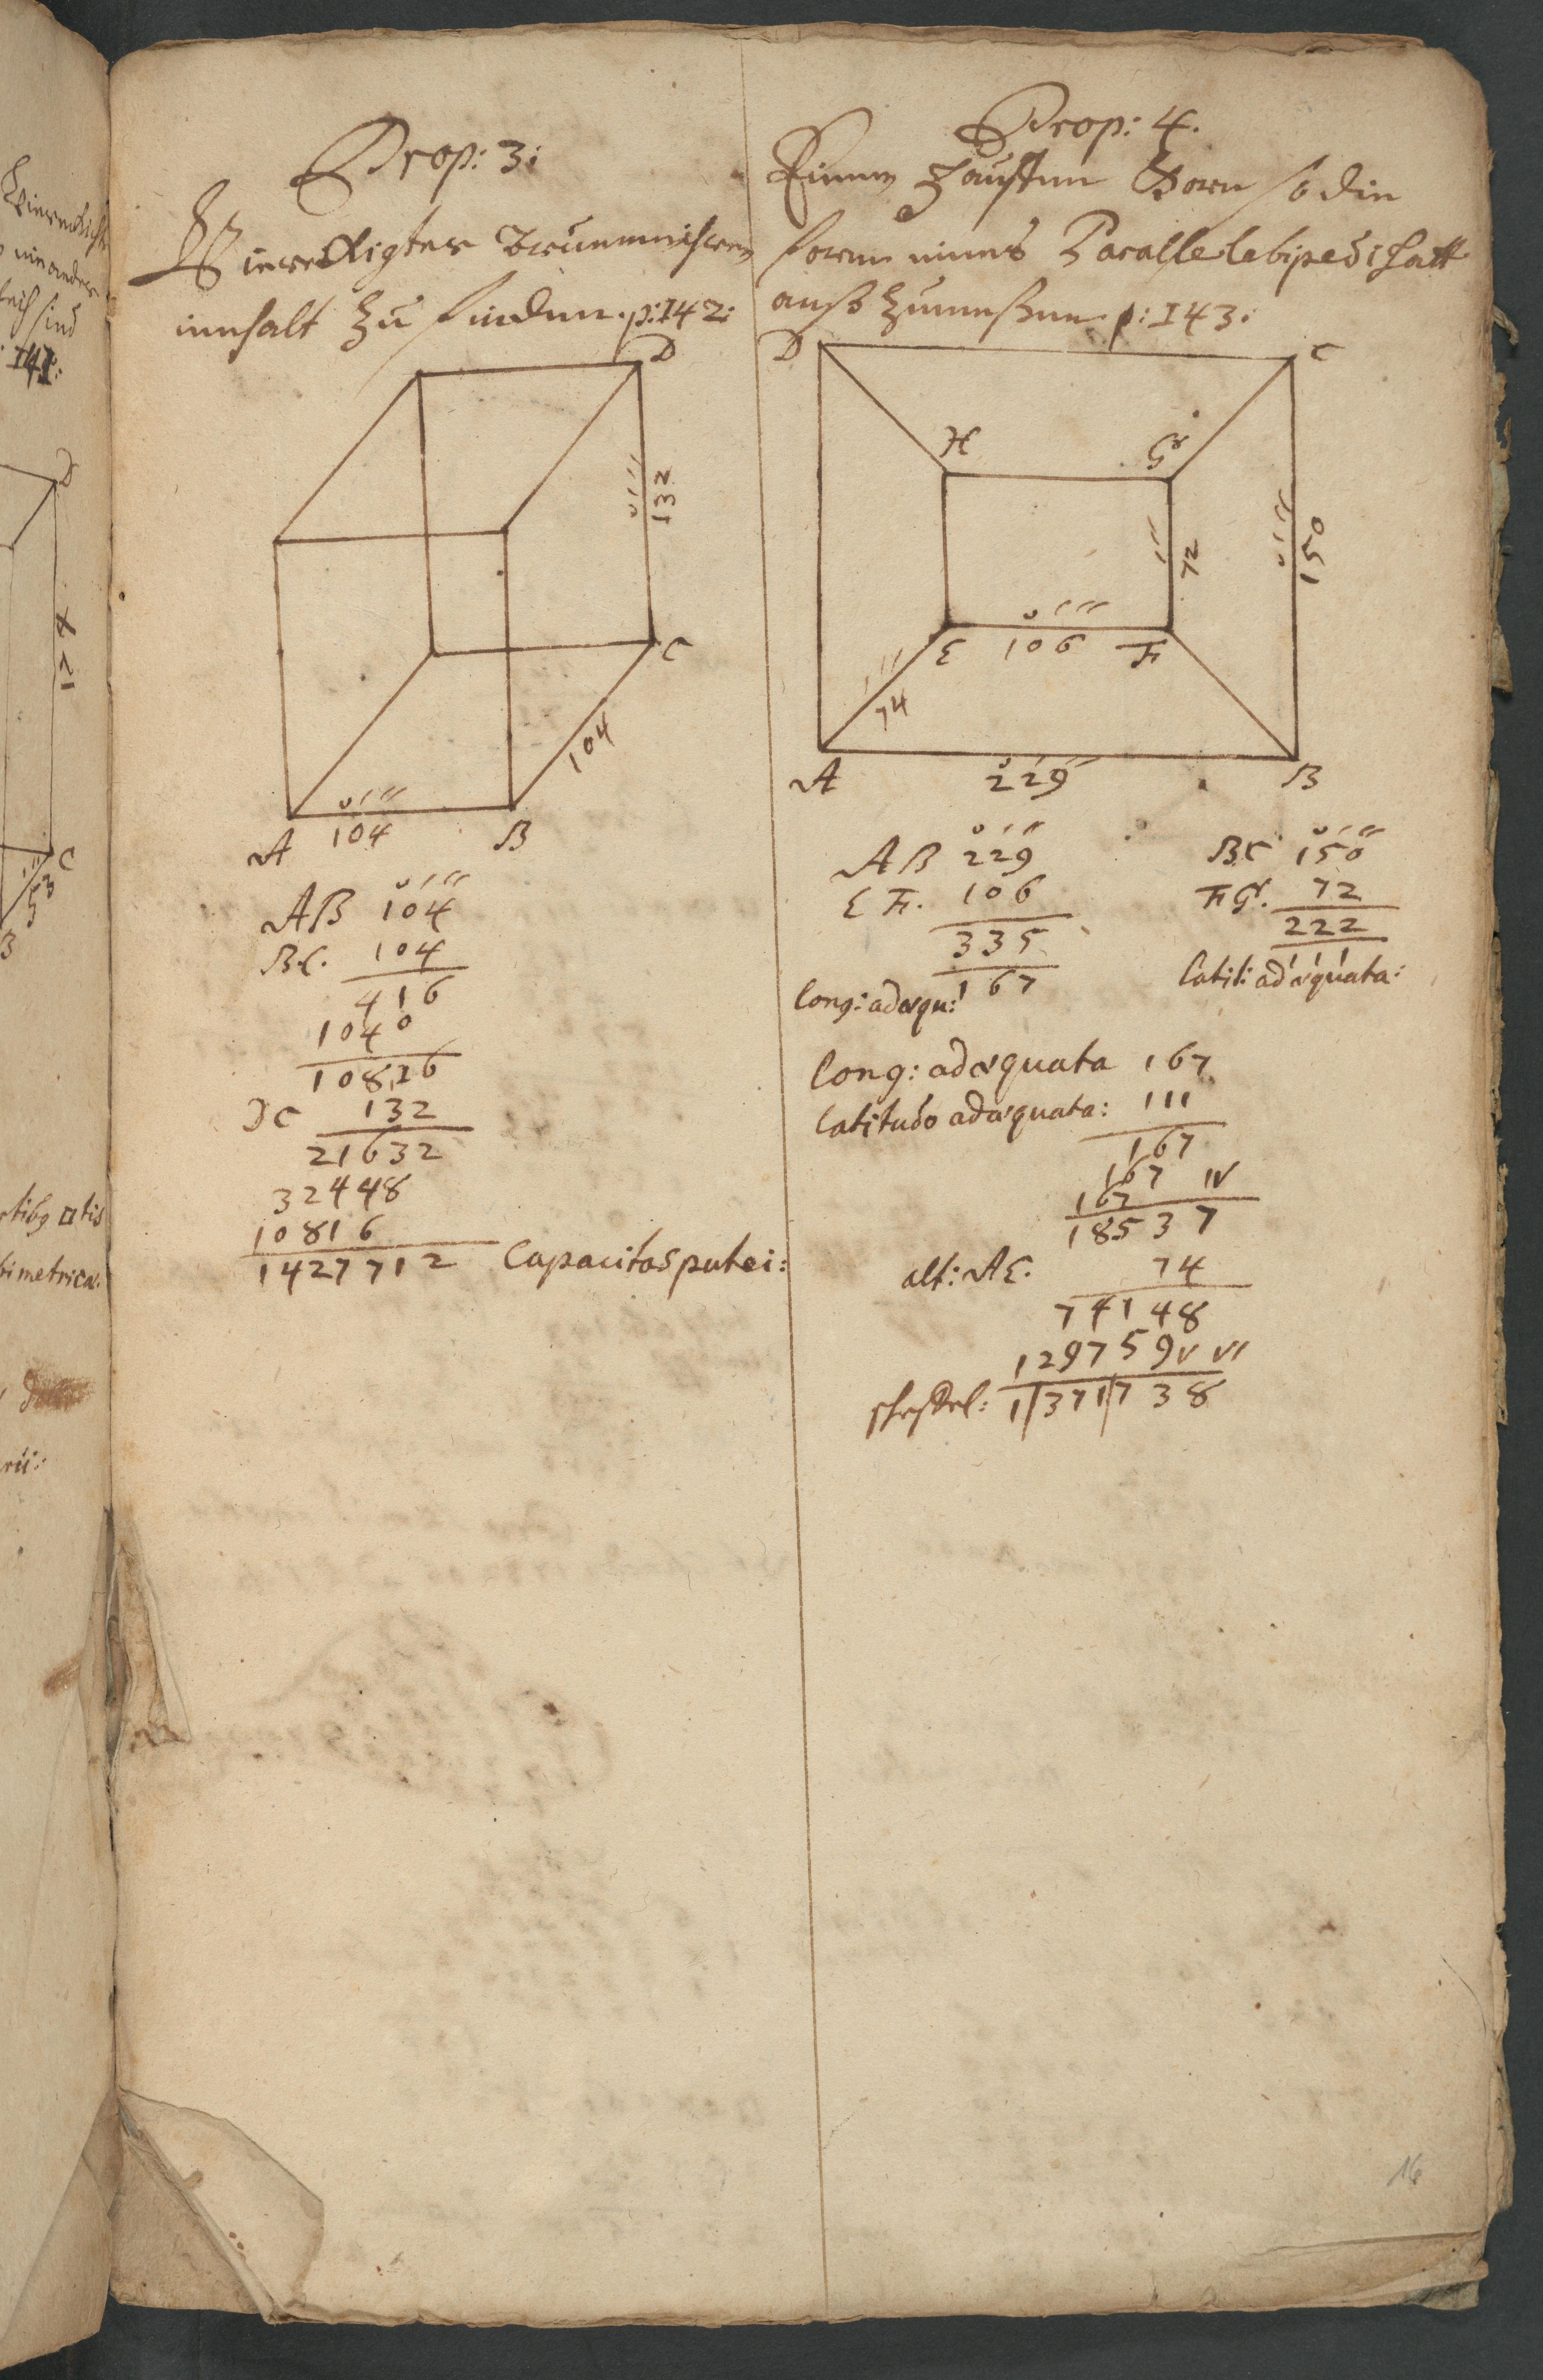 Prop: 3:
Viereckigter Brunnen ihren
innhalt zu finden. p: 142:
D
132
C
104
A 104 B
AB 104
BC. 104
416
1040
10816
DC 132
21632
32448
10816
1427712 Capacitas putei:
Prop: 4.
Einen Hauffen Korn so die
form eines Parallelebipedi hatt
auß zumeßen p: 143:
D C
H G
72
150
E 106 F
74
A 229 B
AB 229
EF. 106
335
long: adæqu: 167
BC 150
FG. 72
222
111
latit: adæquata:
Long: adæquata 167
Latitudo adæquata: 111
167
167 IV
167
18537
alt: AE. 74
74148
129759 V VI
1|371|738
16
141:
D
124
C
53
B